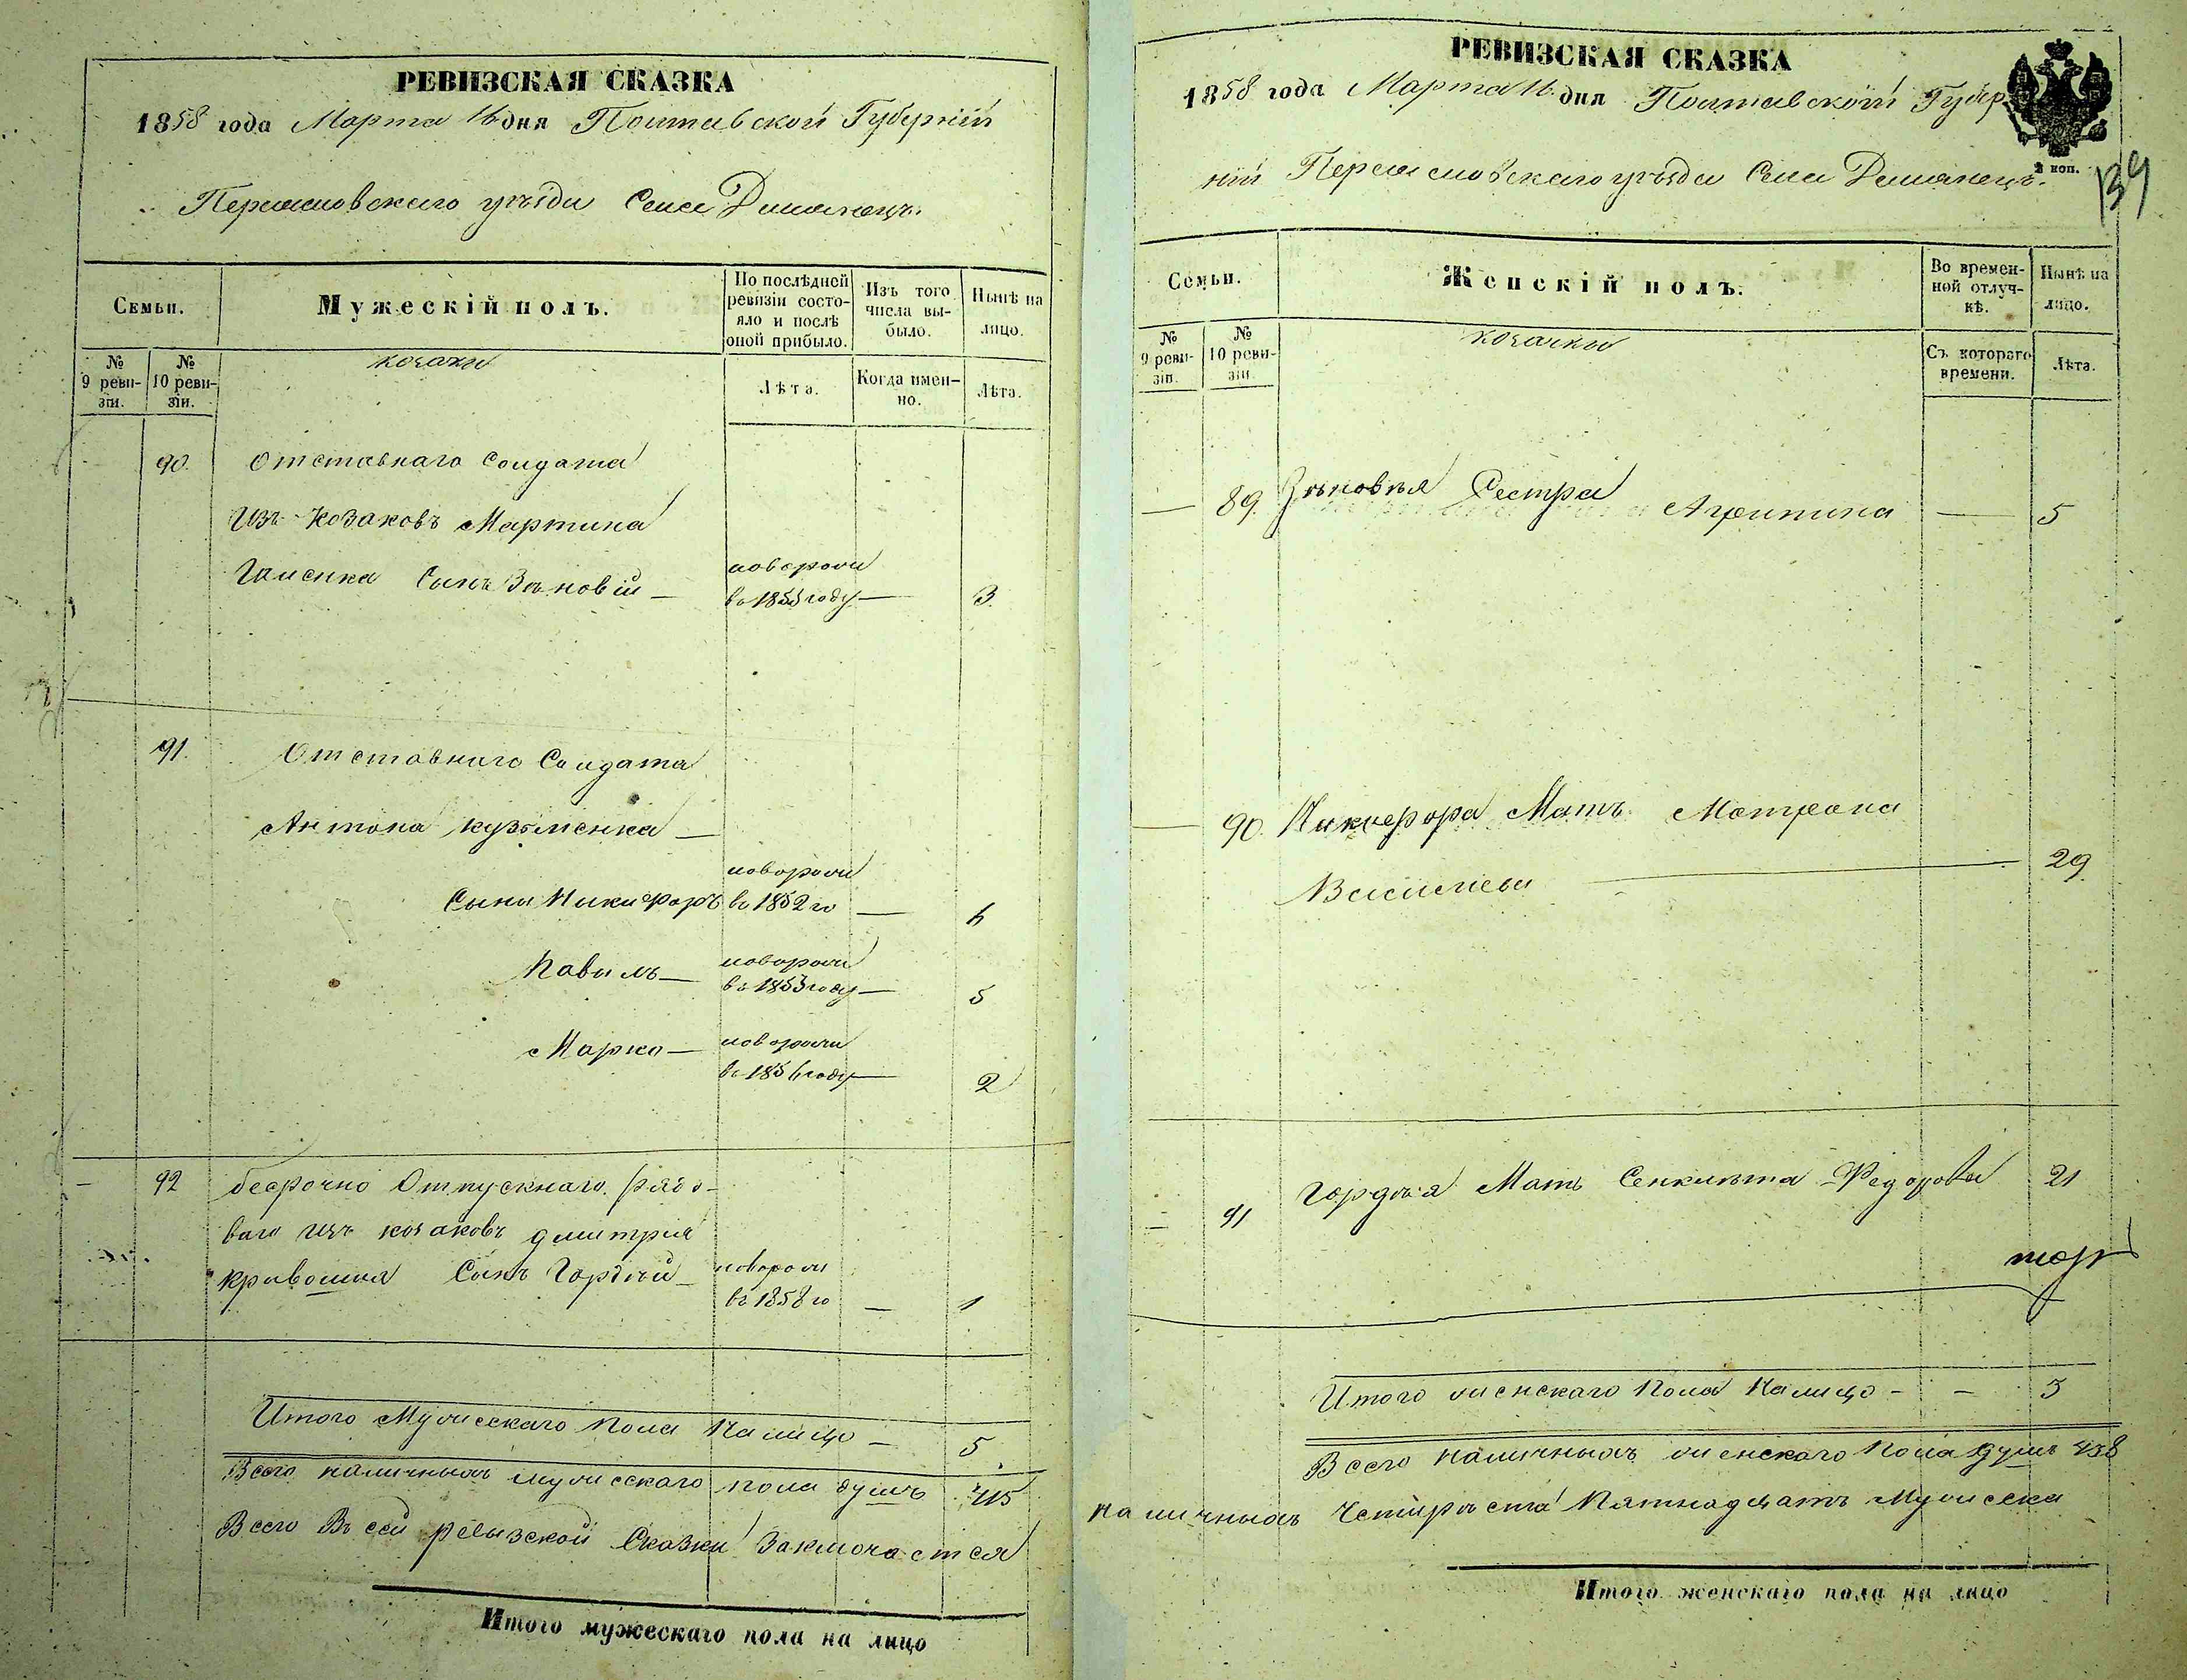 РЕВИЗСКАЯ СКАЗКА
1858 года Марта 16 дня Полтавской Губерніи
Переяславскаго уѣзда Села
Семьи.
Мужескій полъ.
По послѣдней ревизіи состояло и послѣ оной прибыло.
Изъ того числа выбыло.
Нынѣ на лицо.
№ 9 ревизіи.
№ 10 ревизіи.
козаки
Лѣта.
Когда именно.
Лѣта.
90. Отставнаго Солдата
Изъ Козаковъ Мартина
Сынъ Зѣновій — новорожд
въ 1855 году — 3.
91. Отставнаго Солдата
Антона Кузьменка —
новорожд
Сыны Никифоръ въ 1852 го — 6
Павилъ — новорожд
въ 1853 году — 5
Марко — новорожд
въ 1856 году — 2
— 92 бесрочно Отпускнаго рядо-
ваго изъ козаковъ дмитрія
Сынъ Гордѣй — новорожд
въ 1858 го — 1
Итого Мужескаго Пола На лицо — 5.
Всего наличныхъ мужескаго пола душъ 415
Всего Въ сей ревизской Сказки Заключается
Итого мужескаго пола на лицо
РЕВИЗСКАЯ СКАЗКА
1858 года Марта 16 дня Полтавской Губер
ніи Переяславскаго уѣзда Села
2 коп.
139
Семьи.
Женскій полъ.
Во временной отлучкѣ.
Нынѣ на лицо.
№ 9 ревизіи.
№ 10 ревизіи.
козачки
Съ котораго времени.
Лѣта.
— 89. Зѣновія Сестра Агрипина — 5
— 90. Никифора Мать Мотрона
Васильева — 29
— 91 Гордѣя Мать Сенклѣта Федорова 21
Итого женскаго Пола На лицо — — 3
Всего наличныхъ женскаго Пола душъ 458
наличныхъ Четыриста Пятнадцать Мужеска
Итого женскаго пола на лицо